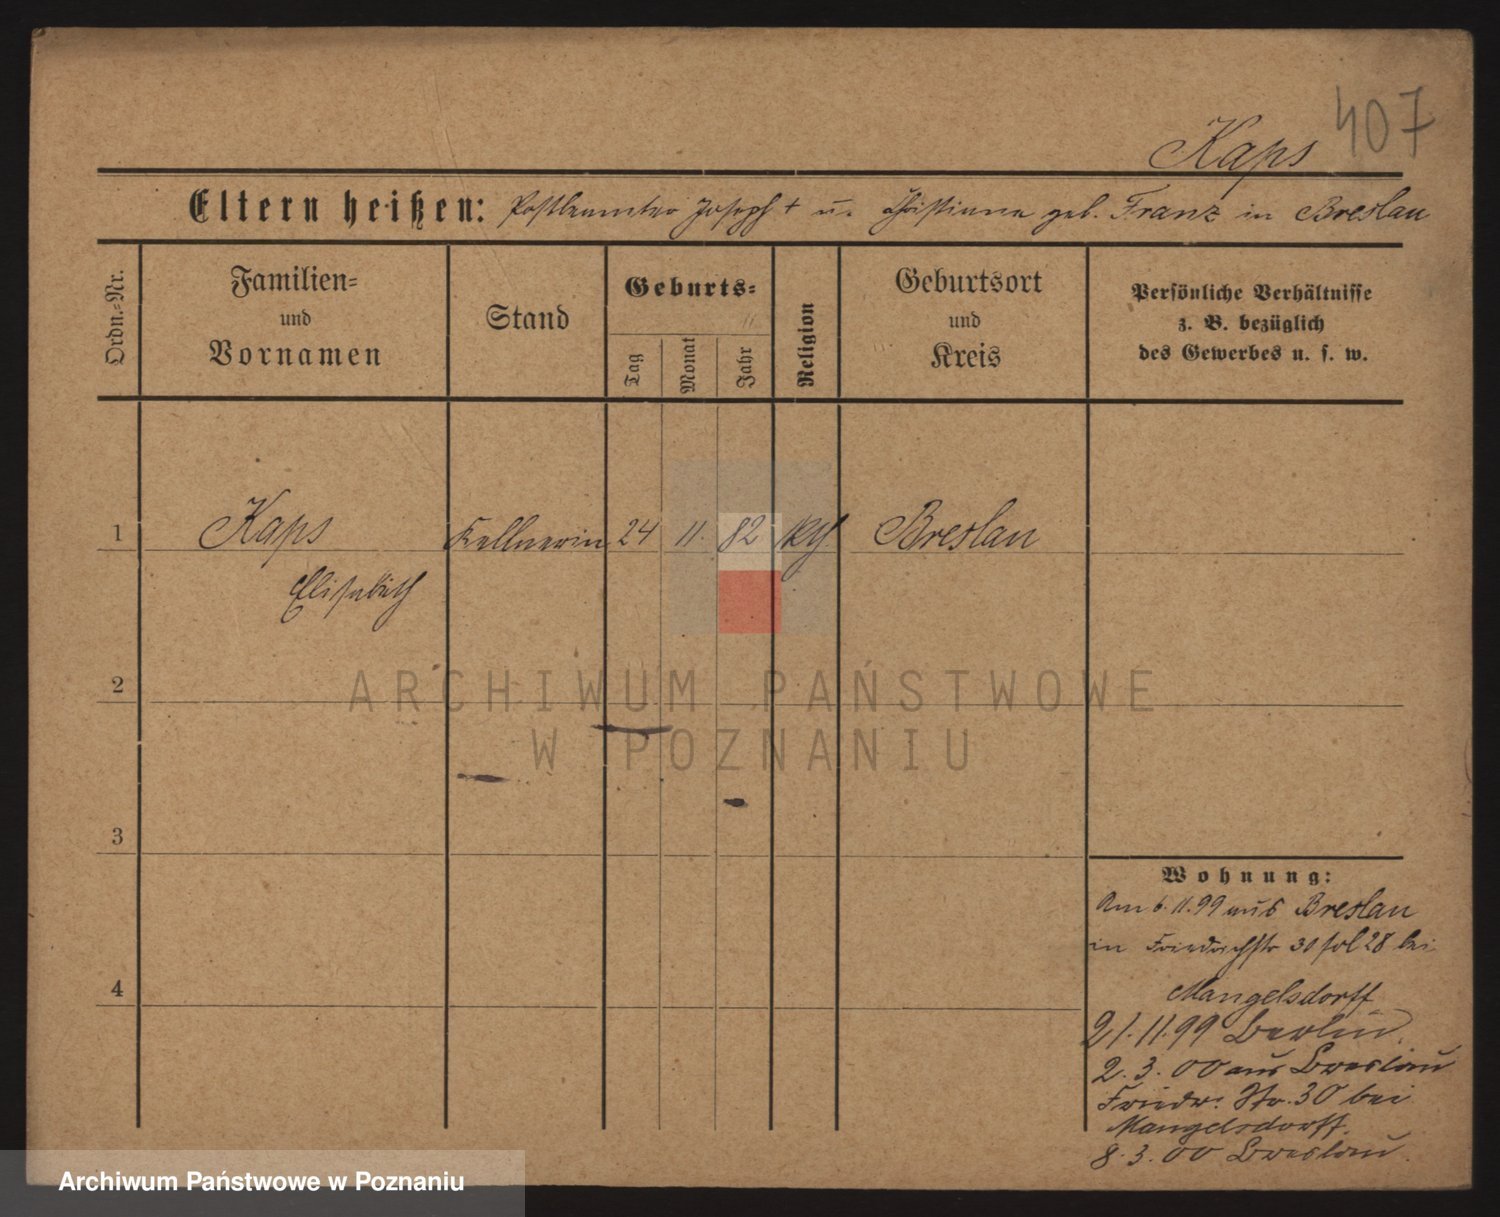 407
Kaps
Eltern heißen: Postbeamter Joseph + u. Christiane geb. Franz in Breslau
Ordn.-Nr.
Familien-
und
Vornamen
Stand
Geburts-
Tag
Monat
Jahr
Religion
Geburtsort
und
Kreis
Persönliche Verhältnisse
z. B. bezüglich
des Gewerbes u. s. w.
1 Kaps Kellnerin 24 11. 82 kth Breslau
Elisabeth
2
3
4
Wohnung:
Am 6.11.99 aus Breslau
in Friedrichstr 30 28 bei
Mangelsdorff
21.11.99 Berlin.
2.3.00 aus Breslau
Friedr. Str. 30 bei
Mangelsdorff.
8.3.00 Breslau.
ARCHIWUM PAŃSTWOWE
W POZNANIU
Archiwum Państwowe w Poznaniu